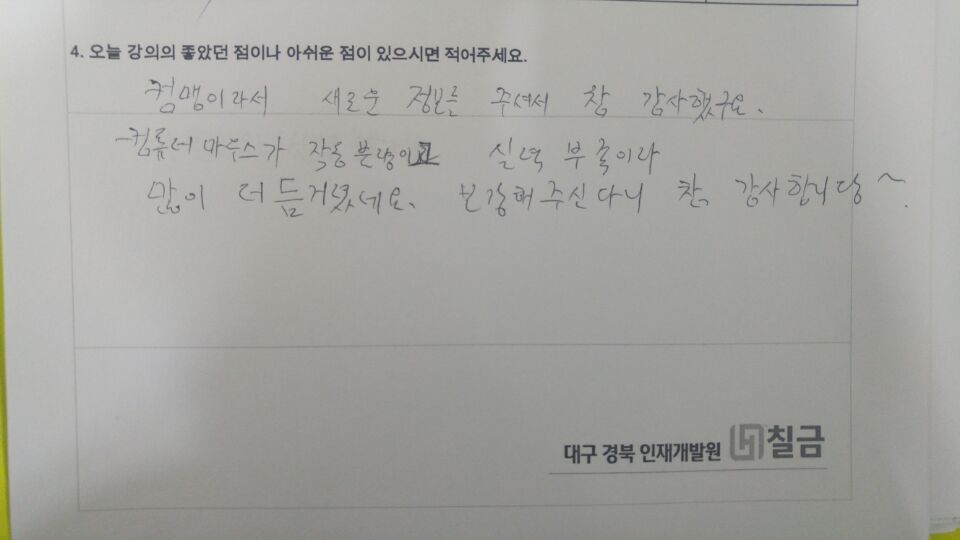 4. 오늘 강의의 좋았던 점이나 아쉬운 점이 있으시면 적어주세요.
컴맹이라서 새로운 정보를 주셔서 참 감사했구요.
-컴퓨터 마우스가 작동 불량이고 실력 부족이라
많이 더듬거렸네요. 보강해주신다니 참 감사합니당~.
대구 경북 인재개발원 칠금